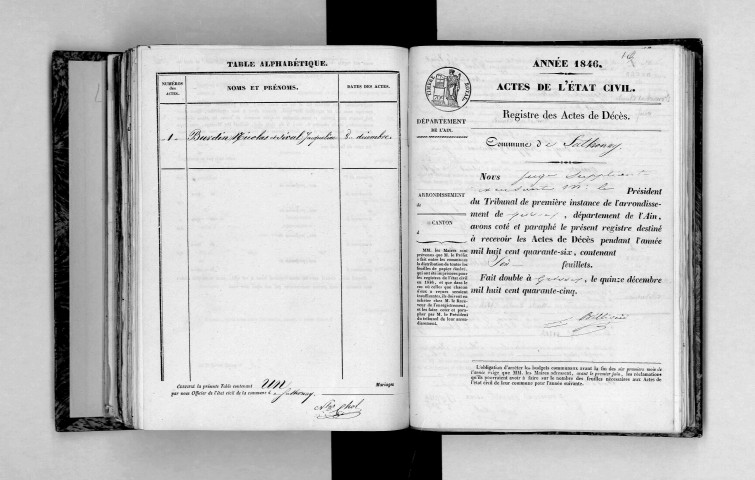 TABLE ALPHABÉTIQUE.
NUMÉROS des ACTES.
NOMS ET PRÉNOMS.
DATES DES ACTES.
1. Burdin Nicolas et Jacqueline 8. décembre
Concerné la présente Table contenant un Mariages
par nous Officier de l'état civil de la commune de Sathonay.
ANNÉE 1846.
ACTES DE L'ÉTAT CIVIL.
TIMBRE ROYAL
DÉPARTEMENT
DE L'AIN.
Registre des Actes de Décès.
Commune de Sathonay
Nous juge suppléant
Président
du Tribunal de première instance de l'arrondisse-
ment de , département de l'Ain,
avons coté et paraphé le présent registre destiné
à recevoir les Actes de Décès pendant l'année
mil huit cent quarante-six, contenant
Six feuillets.
Fait double à , le quinze décembre
mil huit cent quarante-cinq.
ARRONDISSEMENT
de
CANTON
d
MM. les Maires sont
prévenus que M. le Préfet
a fait entre les communes
la distribution de toutes les
feuilles de papier timbré,
qui ont été imprimées pour
les registres de l'état civil
en 1846, et que dans le
cas où celles que chacun
d'eux a reçues seraient
insuffisantes, ils doivent en
acheter chez M. le Rece-
veur de l'enregistrement,
et les faire coter et para-
pher par M. le Président
du tribunal de leur arron-
dissement.
L'obligation d'arrêter les budgets communaux avant la fin des six premiers mois de
l'année exige que MM. les Maires adressent, avant le premier juin, les réclamations
qu'ils pourraient avoir à faire sur le nombre des feuilles nécessaires aux Actes de
l'état civil de leur commune pour l'année suivante.